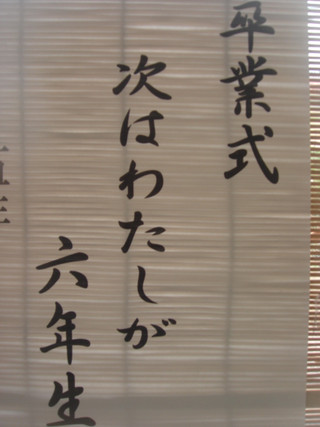 卒業式
次はわたしが
六年生